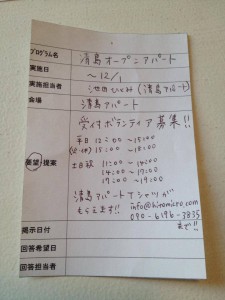 プログラム名 清島オープンアパート
実施日 〜12/1
実施担当者 池田ひとみ(清島アパート)
会場 清島アパート
要望・提案
受付ボランティア募集!!
平日 12:00〜15:00
15:00〜18:00
土日祝 11:00〜14:00
14:00〜17:00
17:00〜19:00
清島アパートTシャツが
もらえます!! info@hiromicro.com
090-6196-3835
まで!!
掲示日付
回答希望日
回答担当者